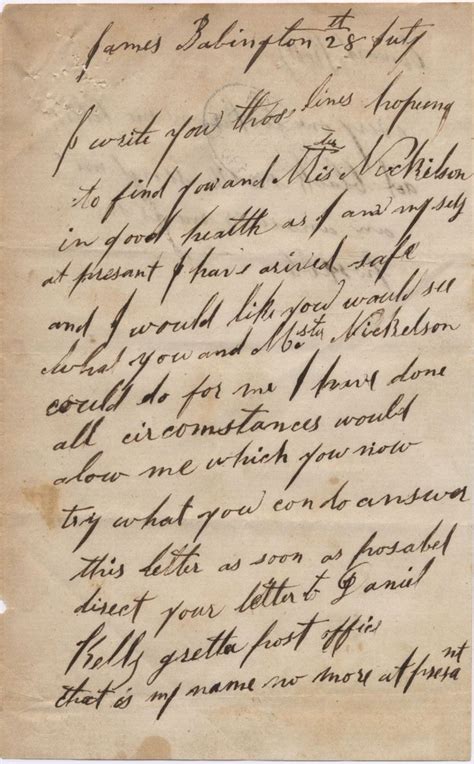 James Babington 28th July
I write you thos lines hopeing
to find you and Mister Nickelson
in good health as I am myself
at presant I have arived safe
and I would like you would see
what you and Mster Nickelson
could do for me I have done
all circomstances would
alow me which you now
try what you con do answer
this letter as soon as posabel
direct your letter to Daniel
Kelly gretta post offics
that is my name no more at presant